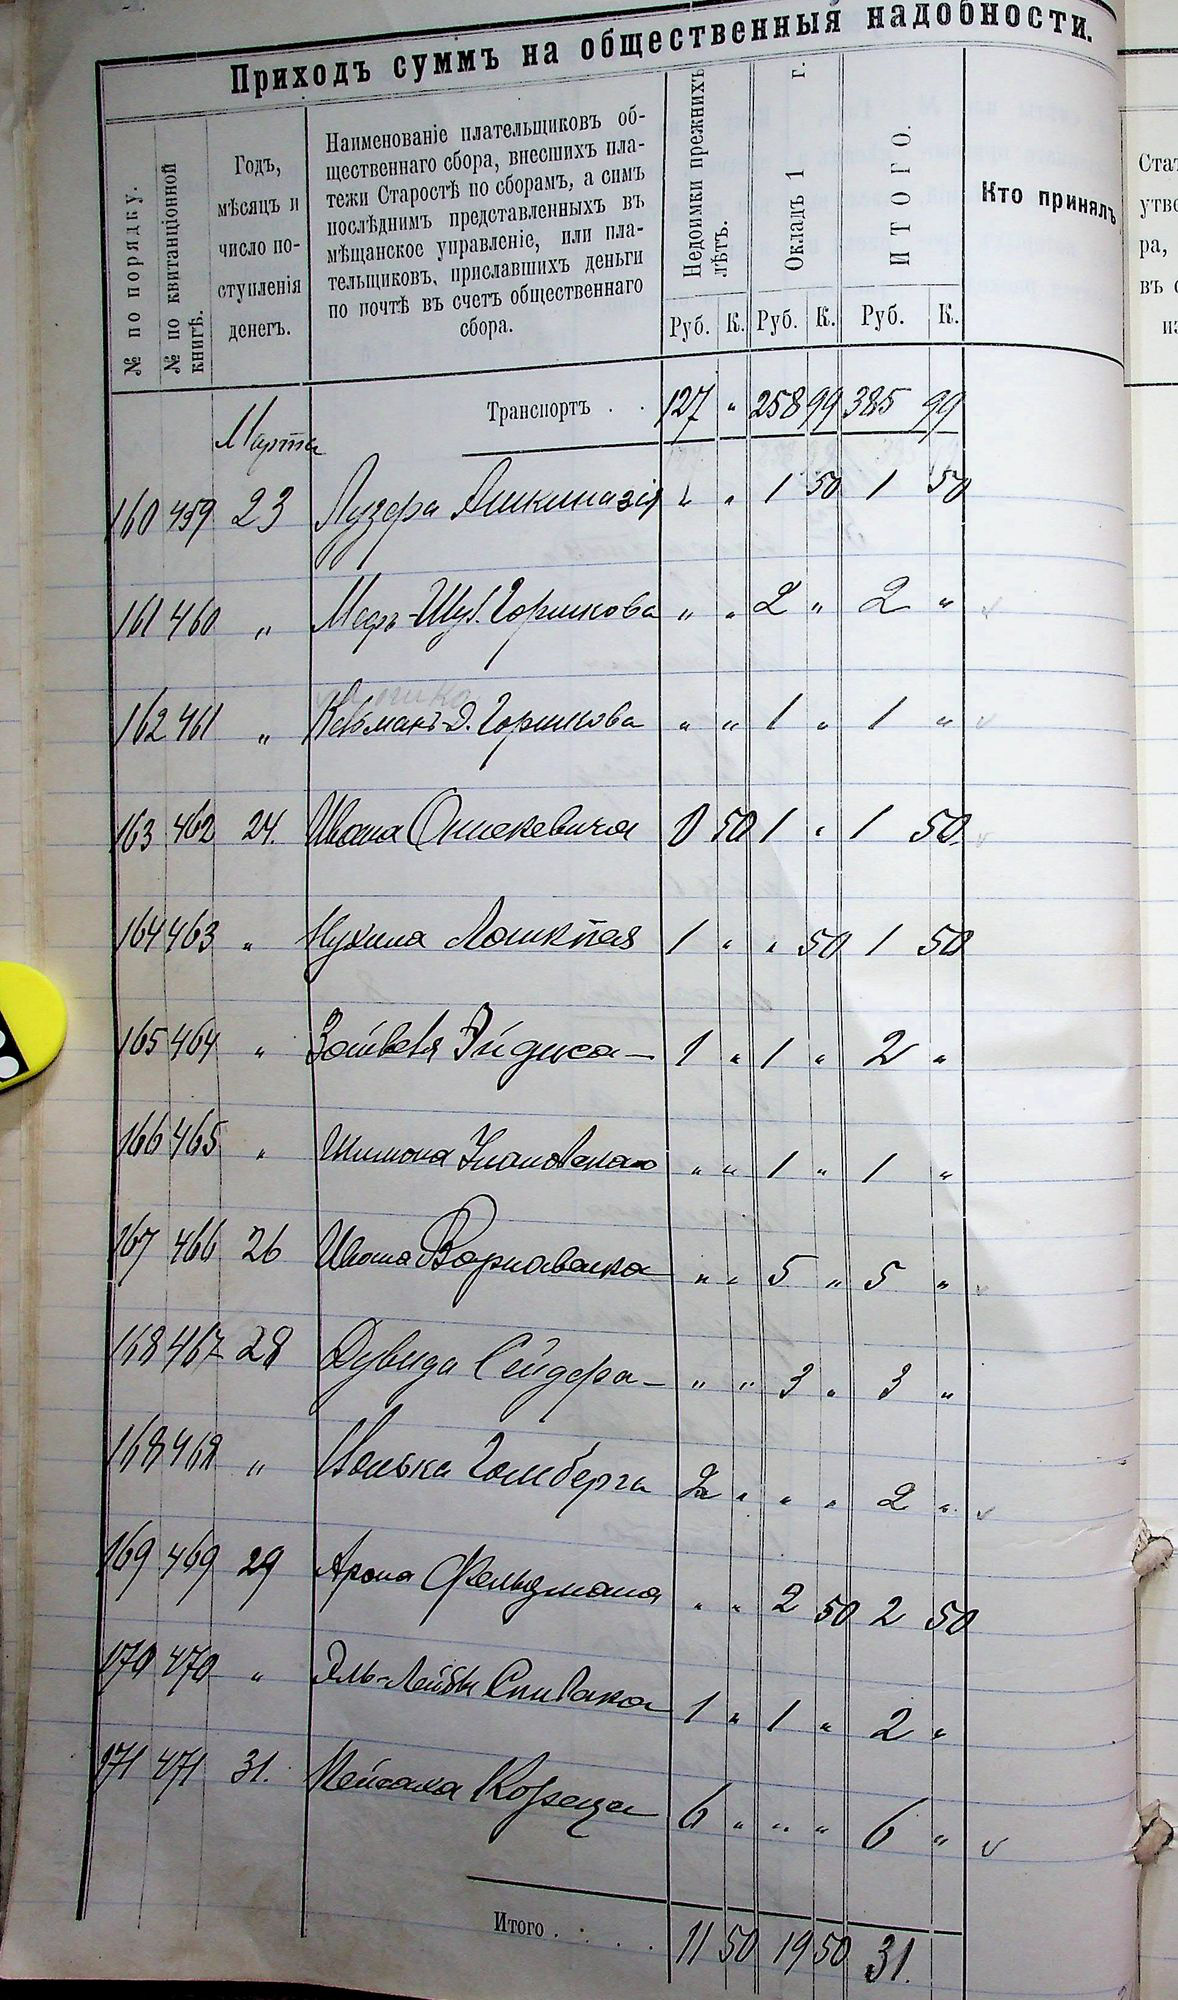 Приходъ суммъ на общественныя надобности.
№ по порядку.
№ по квитанціонной книгѣ.
Годъ, мѣсяцъ и число поступленія денегъ.
Наименованіе плательщиковъ об-
щественнаго сбора, внесшихъ пла-
тежи Старостѣ по сборамъ, а симъ
послѣднимъ представленныхъ въ
мѣщанское управленіе, или пла-
тельщиковъ, приславшихъ деньги
по почтѣ въ счетъ общественнаго
сбора.
Недоимки прежнихъ лѣтъ.
Окладъ 1 г.
ИТОГО.
Кто принялъ
Руб. К. Руб. К. Руб. К.
Транспортъ . . 127 " 258 99 385 99
Марта
160 459 23 Лузера Ашкиназія " " 1 50 1 50
161 460 " Горшкова " " 2 " 2 "
162 461 " Кельманъ-Д. Горшкова " " 1 " 1 "
163 462 24. Ивана 0 50 1 " 1 50
164 463 " Нухима 1 " " 50 1 50
165 464 " Зайвеля Эйдиса 1 " 1 " 2 "
166 465 " Шимона Улановскаго " " 1 " 1 "
167 466 26 Ивана " " 5 " 5 "
168 467 28 Дувида Сейдера " " 3 " 3 "
168 468 " Волька Гомберга 2 " " " 2 "
169 469 29 Арона Фельдмана " " 2 50 2 50
170 470 " Эль-Лейбы Спивака 1 " 1 " 2 "
171 471 31. Пейсаха Кореца 6 " " " 6 "
Итого . . . . 11 50 19 50 31.